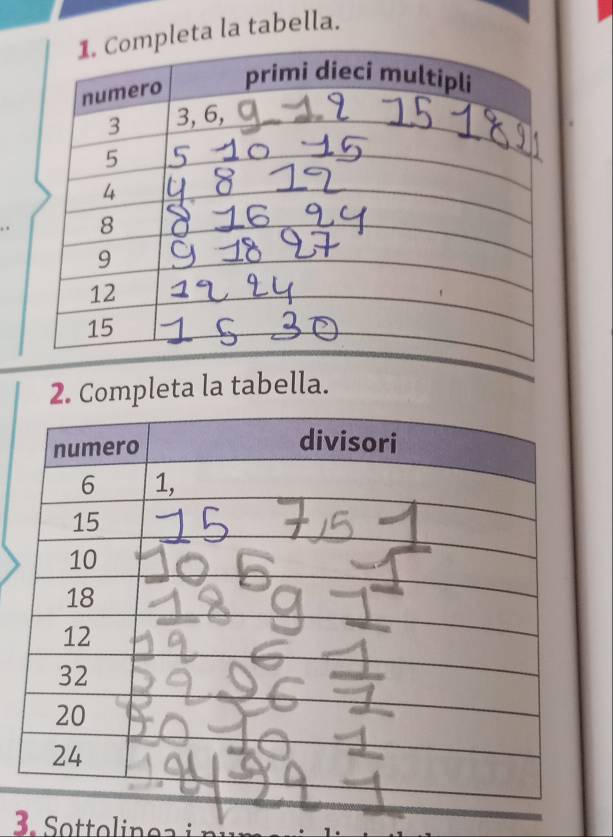 1. Completa la tabella.
numero primi dieci multipli
3 3, 6, 9 12 15 18 21
5 5 10 15
4 4 8 12
8 8 16 24
9 9 18 27
12 12 24
15 15 30
2. Completa la tabella.
numero divisori
6 1,
15 15 7,5 1
10 10 5 1
18 18 9 1
12 12 6 1
32 32 1
20 20 10 1
24 24 1
3. Sottolinea i